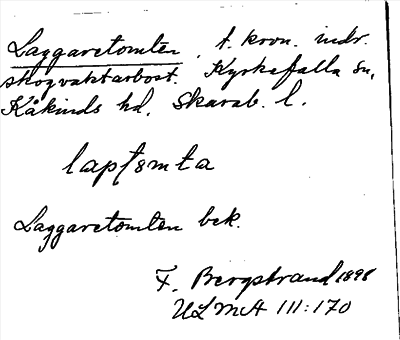 Laggaretomten, f. kron. indr.
skogvaktarbost. Kyrkefalla sn,
Kåkinds hd, Skarab. l.
Laggaretomten bek.
F. Bergstrand 1898
ULMA 111:170